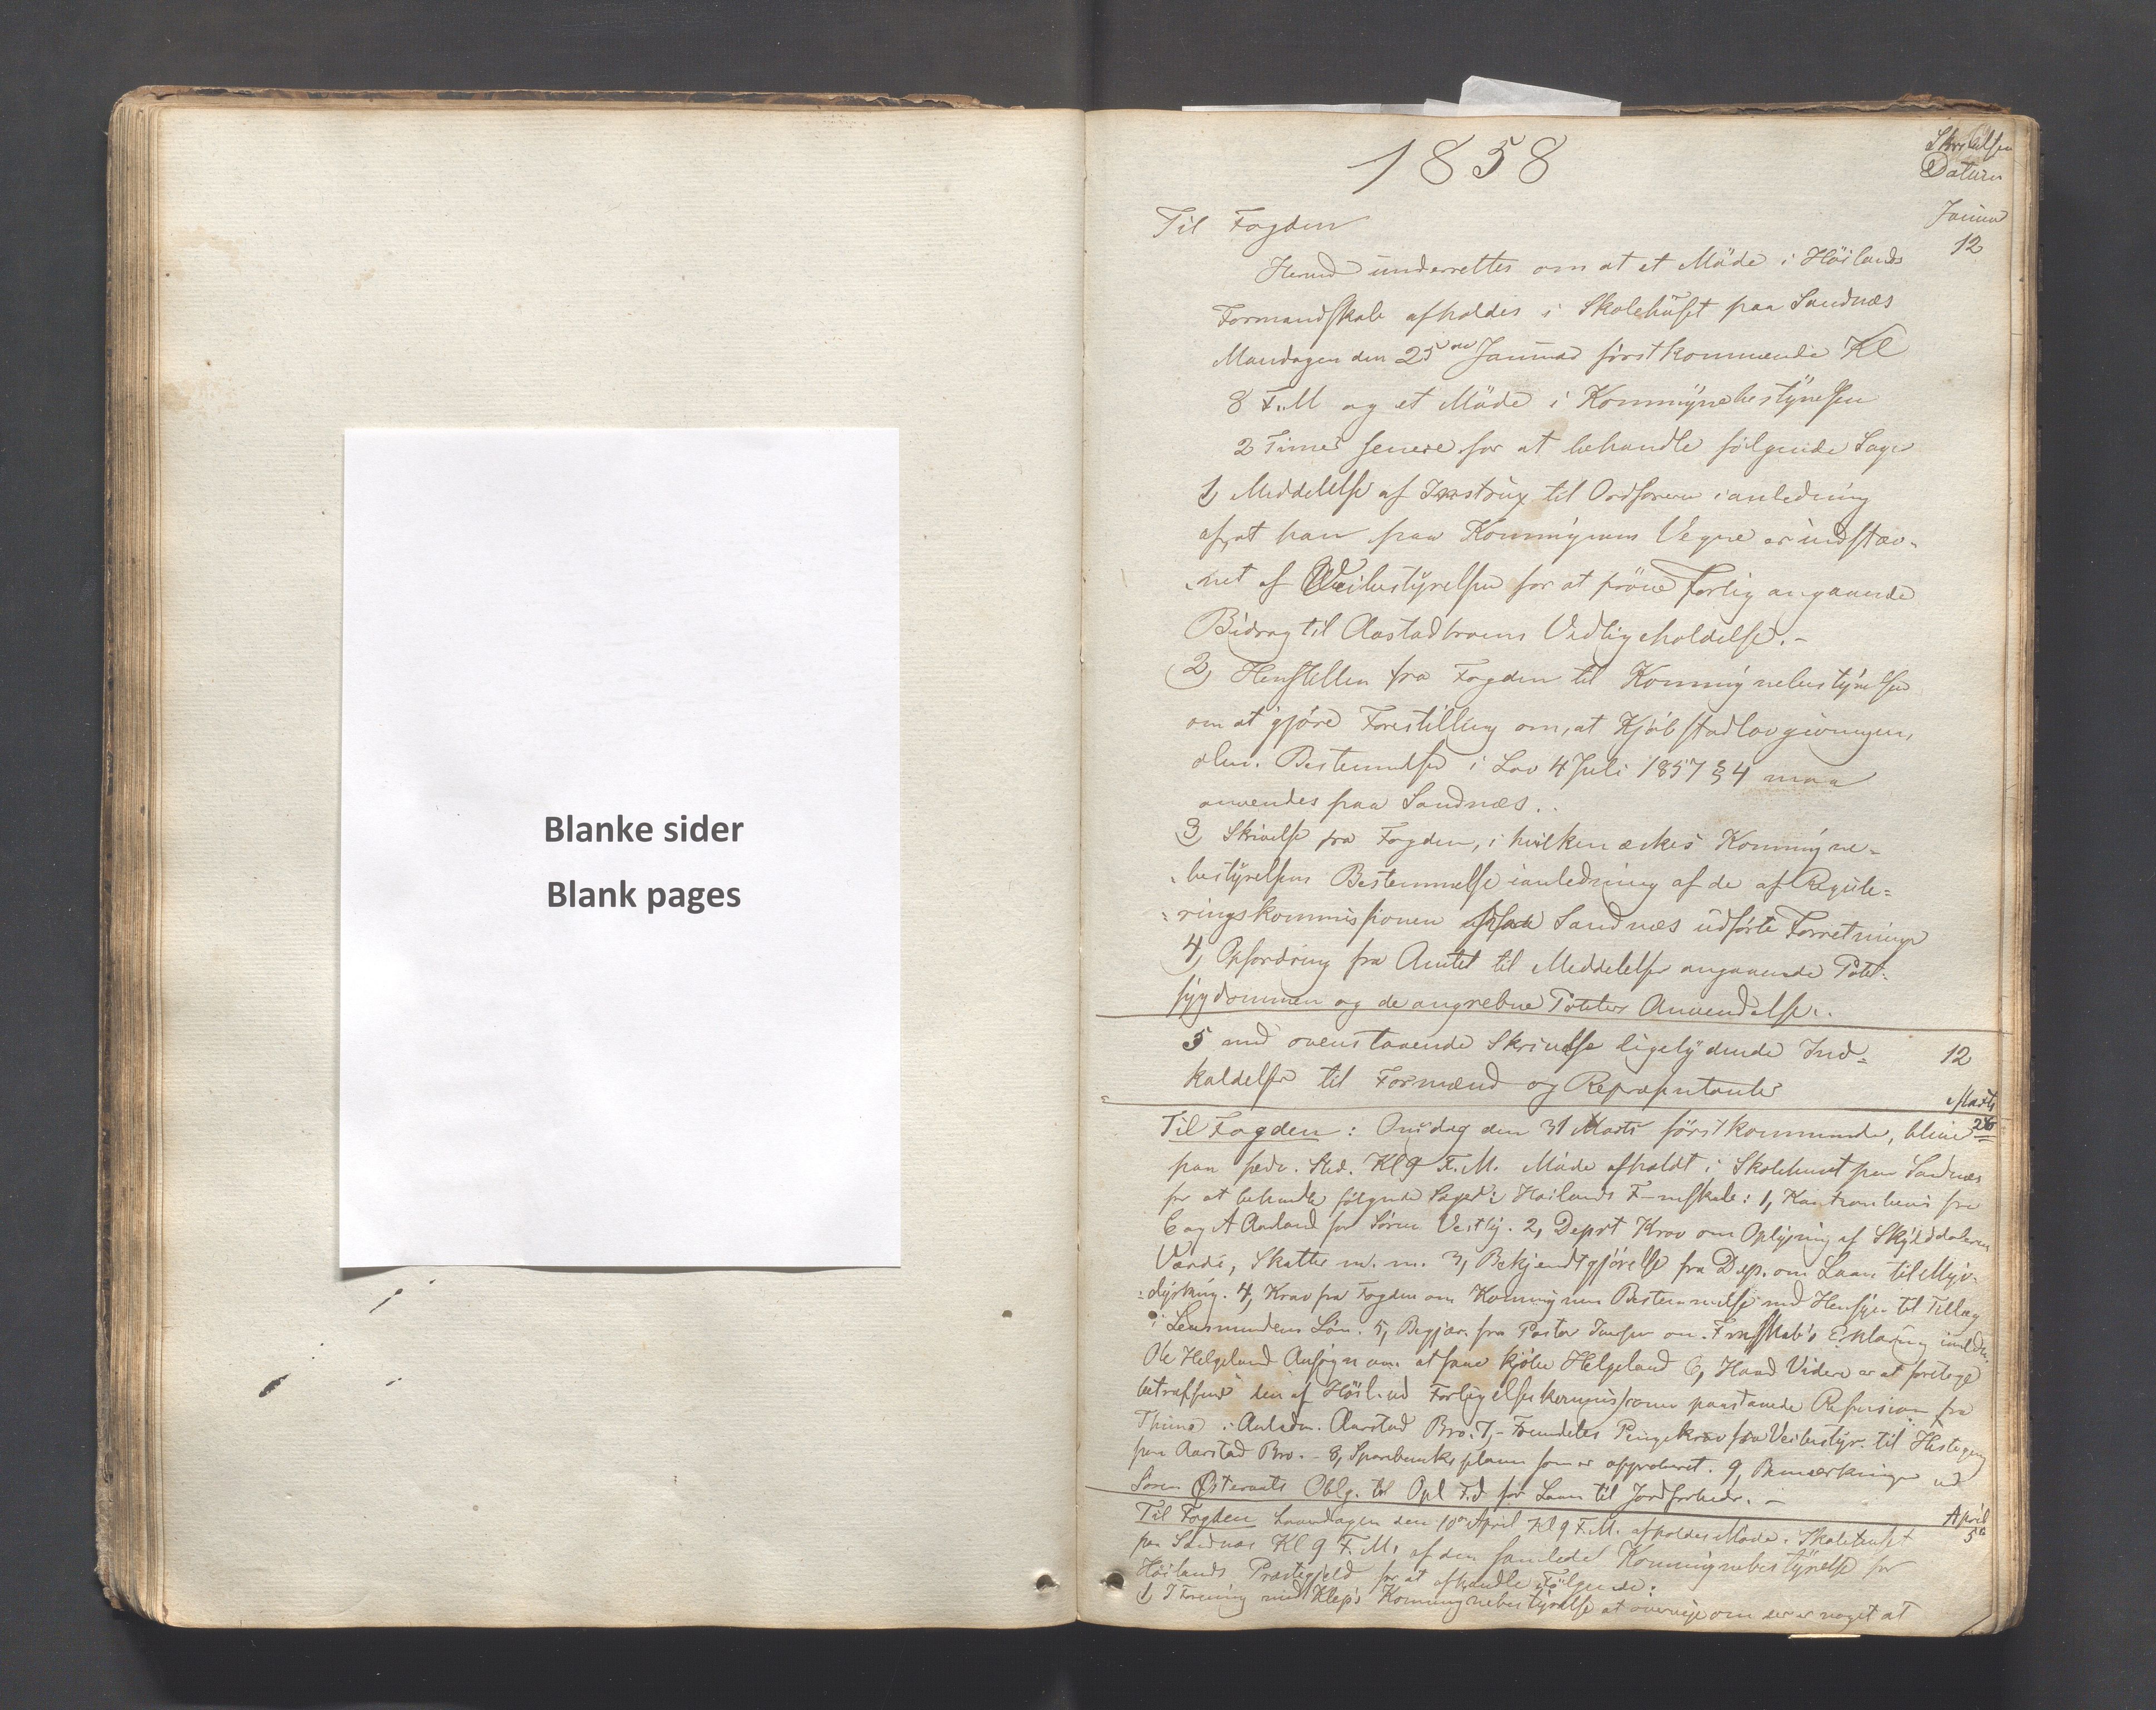 Blanke sider
Blank pages
1858
Skrivelsen
Datum
Januar
12
Til Fogden
Herved underrettes om at et Möde i Höilands
Formandskab afholdes i Skolehuset paa Sandnæs
Mandagen den 25de Januar förstkommende Kl
8 F.M og et Möde i Kommunebestyrelsen
2 Timer senere for at behandle fölgende Sager
1, Meddelelse af Instrux til Ordförern i anledning
af, at han paa Kommunens Vegne er indstæv-
net af Veibestyrelsen for at pröve Forlig angaaende
Bidrag til Aastadbroens Vedligeholdelse.-
2, Henstillen fra Fogden til Kommunebestyrelsen
om at gjöre Forestilling om, at Kjöbstadlovgivningen,
Bestemmelser i Lov 4 Juli 1857 § 4 maa
anvendes paa Sandnæs.
3 Skrivelse fra Fogden, i hvilken æskes Kommune-
bestyrelsens Bestemmelse i anledning af de af Regule-
ringskommissionen paa Sandnæs udförte Forretninger
4, Opfordring fra Amtet til Meddelelser angaaende Potet-
sygdommen og de angrebne Poteters Anvendelse.
5 med ovenstaaende Skrivelse ligelydende Ind-
kaldelser til Formænd og Repræsentanter
12
Marts
26
Til Fogden: Onsdag den 31 Marts förstkommende, bliver
paa sedv. Sted. Kl 9 F.M. Möde afholdt i Skolehuset paa Sandnæs
for at behandle fölgende Sager i Höilands F-mskab: 1, fra
E og A Aarland for Sören Vestly. 2, Depst Krav om Oplysning af Skylddalerens
Værdi, Skatter m. m. 3, Bekjendtgjörelse fra Dep. om Laan til Myr-
dyrkning. 4, Krav fra Fogden om Kommunens Bestemmelse med Hensyn til Tillæg
i Lensmandens Lön. 5, Begjær. fra Pastor Jensen om Fmskab's Erklæring
Ole Helgeland Ansögn om at faae kjöbe Helgeland 6, Hvad Videre er at foretage
betræffende den af Höiland Forligelseskommission paastaaede Refusion fra
Thime i Anledn. Aarstad Bro. 7,- Pengekrav fra Veibestyr. til
paa Aarstad Bro. - 8, Sparebanksplanen som er approberet. 9, Bemærkninger ved
Sören Österaats Oblg. til Opl F.d for Laan til Jordforbedr. -
April
5te
Til Fogden Laverdagen den 10de April Kl 9 F.M. afholdes Möde i Skolehuset
paa Sandnæs Kl 9 F.M. af den samlede Kommunebestyrelse for
Höilands Præstegjeld for at afhandle Fölgende:
1, I Forening med Klep's Kommunebestyrelse at overveje om der er noget at